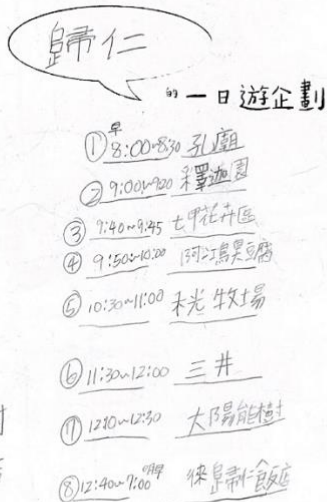 歸仁
的一日遊企劃
① 早8:00~8:30 孔廟
② 9:00~9:20 釋迦園
③ 9:40~9:45 七甲花卉區
④ 9:50~10:00 阿江臭豆腐
⑤ 10:30~11:00 牧場
⑥ 11:30~12:00 三井
⑦ 12:10~12:30 太陽能樹
⑧ 12:40~7:00 歸仁飯店